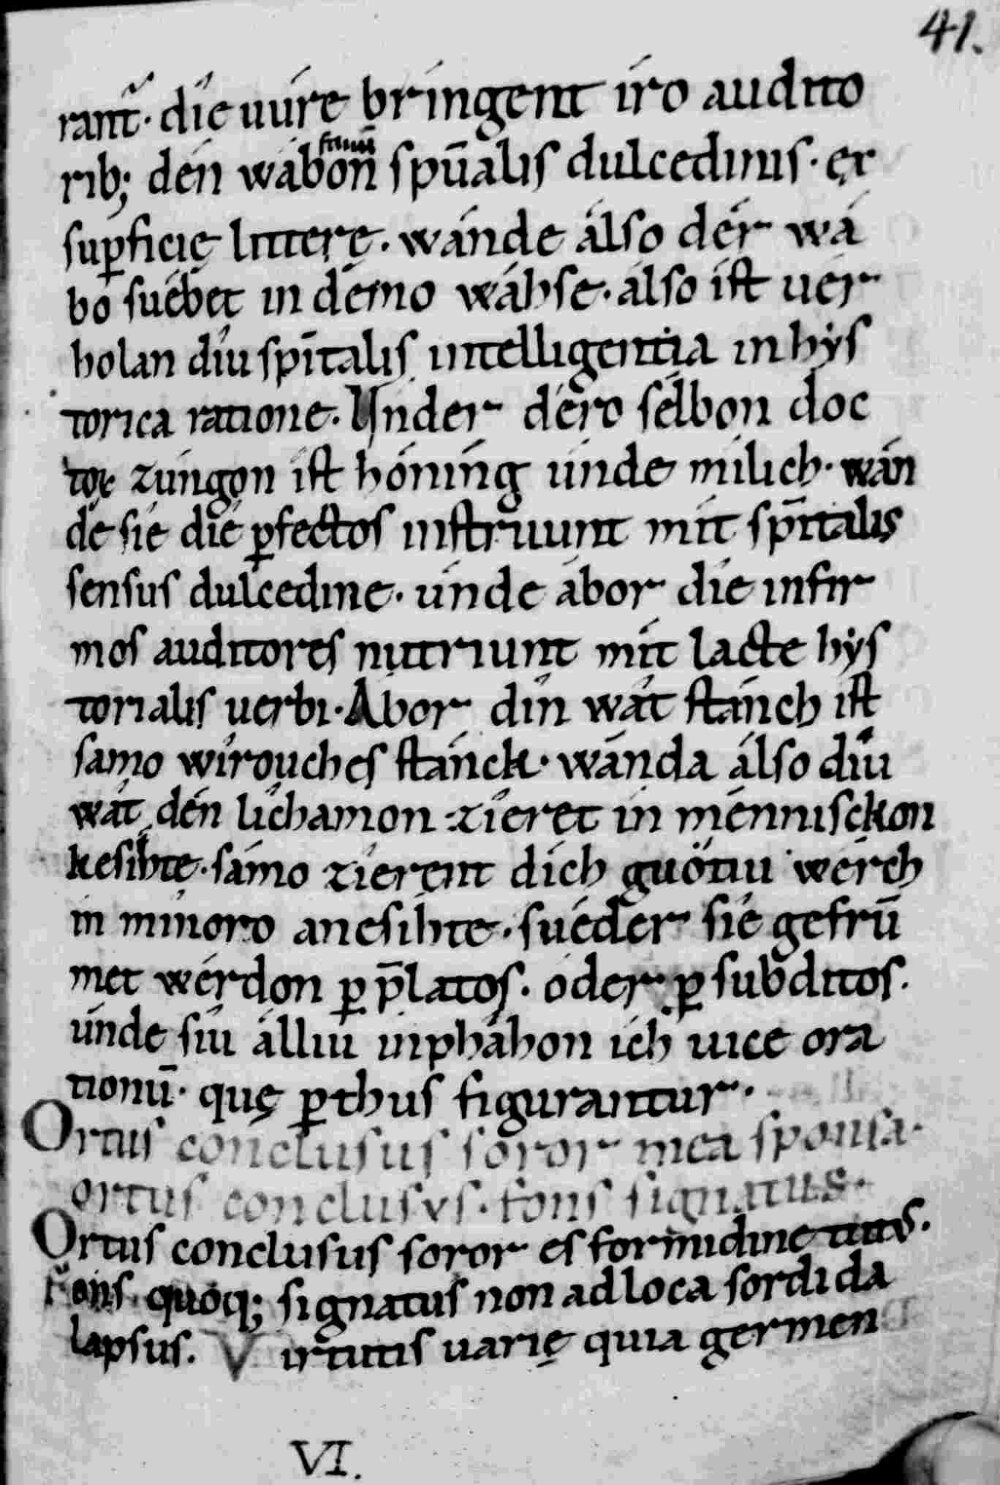 41.
rant̄. díe uúre bríngent íro audito
rib; dén wábon spūalis dulcedinis. ex
fauū
sup̱ficię litterę. wánde álso dér wá
bo suébet in démo wáhse. álso ist uér
holan díu sp̄italis intelligentia in hẏs
torica ratione. Únder déro sélbon doc
tor zúngon ist hóning únde mílich. wán
de síe díe ꝑfectos instruunt mít sp̄italis
sensus dulcedine. únde ábor díe infir
mos auditores nutriunt mít lacte hẏs
torialis uerbi. Abor dín wát stánch ist
sámo wírouches stánck. wánda álso díu
wát dén líchamon zíeret in ménnisckon
kesíhte. sámo zíerent dích guótiu wérch
in mínoro anesíhte. suéder síe gefrū
met wérdon ꝑ p̄latos. óder ꝑ subditos.
únde síu álliu inpháhon ích uice ora
tionū. quę ꝑ thus figurantur.
Ortus conclusus soror mea sponsa.
ortus conclusvs. fons signatus.
Ortus conclusus soror es formidine tutus.
Fons quoq; signatus non ad loca sordida
lapsus. Virtutis uarię quia germen
VI.